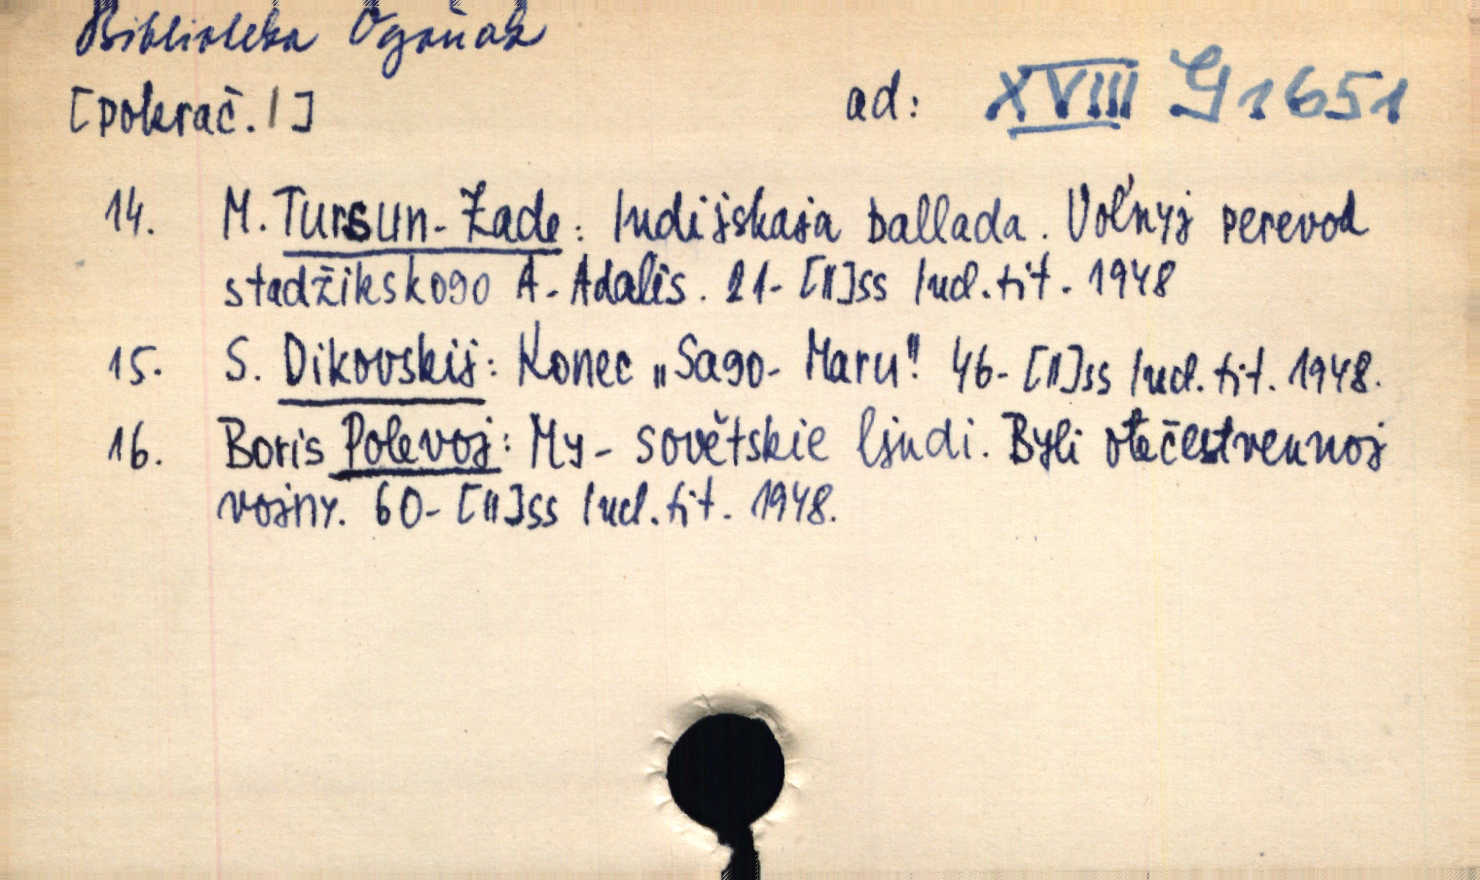 Biblioteka Ogoňok
[pokrač. 1] ad: XVIII G 1651
14. M. Tursun-Zade: Indijskaja ballada. Voľnyj perevod
s tadžikskogo A. Adalis. 21-[II] ss Incl. tit. 1948
15. S. Dikovskij: Konec „Sago-Maru". 46-[II] ss Incl. tit. 1948.
16. Boris Polevoj: My - sovětskie ljudi. Byli otečestvennoj
vojny. 60-[II] ss Incl. tit. 1948.